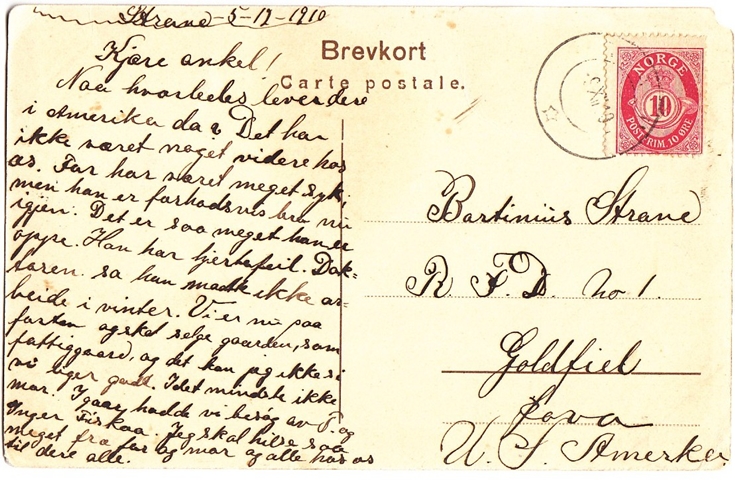 Strane - 5-12-1910
Kjære onkel!
Naa hvorledes lever dere
i Amerika da? Det har
ikke været noget videre hos
os. Far har været meget syk.
men han er forhodsvis bra nu
igjen. Det er saa meget han er
oppe. Han har hjertefeil. Dok-
toren sa han maatte ikke ar-
beide i vinter. Vi er nu paa
farten og skal selge gaarden, som
fattiggaard, og det kan jeg ikke si
vi liger godt. I det mindste ikke
mor. Igaar hadde vi besøg av T. og
Inger Fiskaa. Jeg skal hilse saa
meget fra far og mor og alle hos os
til dere alle.
Brevkort
Carte postale.
NORGE
10
POSTFRIM. 10 ØRE
Bartinius Strane
R. F. D. No 1.
Goldfiel
Iova
U. S. Amerka